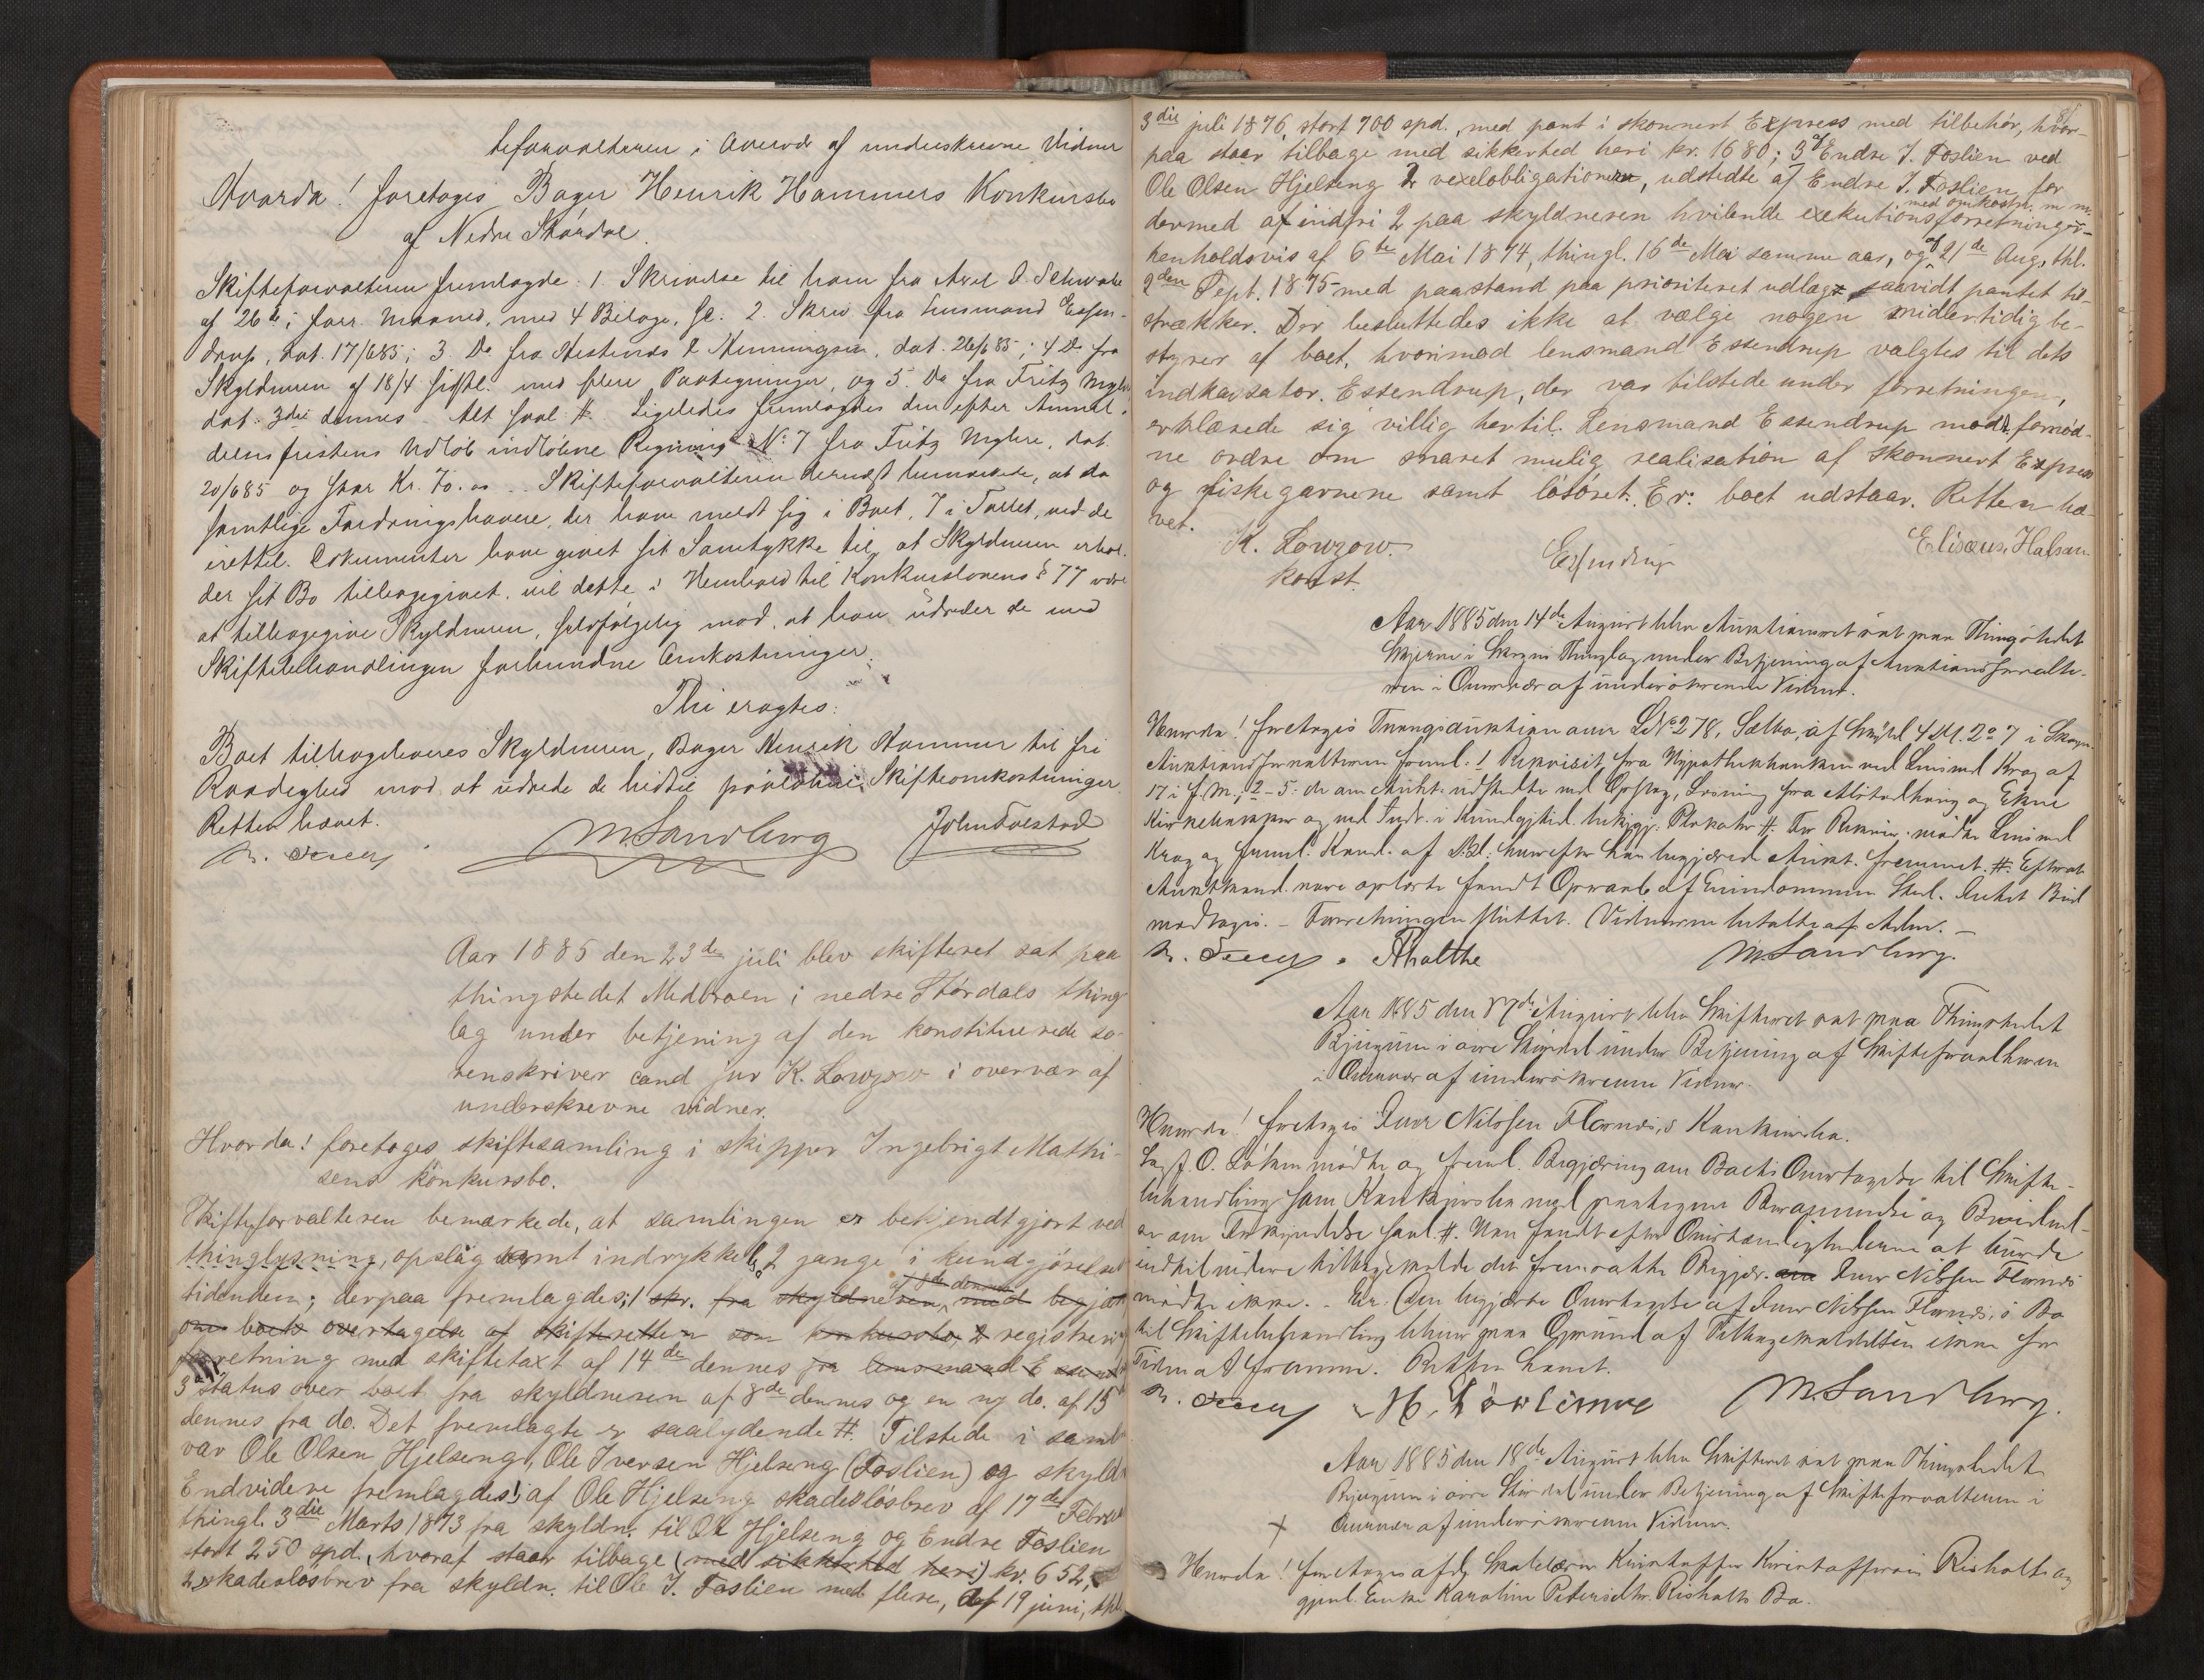 teforvalteren i Overvær af underskrevne Vidner
Hvorda! foretoges Bager Henrik Hammers Konkursbo
af Nedre Størdal.
Skifteforvalteren fremlagde: 1. Skrivelse til ham fra Axel
af 26de i forr. Maaned, med 4 Bilage, 2. Skriv. fra Lensmand Essen-
drup, dat. 17/6 85; 3. Do fra & Henningsen, dat. 26/6 85; 4 Do fra
Skyldneren af 18/4 sidstl. med flere Paategninger, og 5. Do fra Fritz
dat. 3die dennes. Alt saal. #. Ligeledes fremlagdes den efter Anmel-
delsesfristens Udløb indløbne Regning No 7 fra Fritz dat.
20/6 85 og stor Kr. 70. Skifteforvalteren dernæst bemærkede, at da
samtlige Fordringshavere, der have meldt sig i Boet, 7 i Tallet, ved de
irettel. Dokumenter have givet sit Samtykke til, at Skyldneren erhol-
der sit Bo tilbagegivet, vil dette i Henhold til Konkurslovens § 77 være
at tilbagegive Skyldneren, selvfølgelig mod, at han udreder de med
Skiftebehandlingen forbundne Omkostninger.
Thi eragtes:
Boet tilbageleveres Skyldneren, Bager Henrik Hammer til fri
Raadighed mod at udrede de hidtil paaløbne Skifteomkostninger
Retten hævet.
M. Sandberg John Folstad
Aar 1885 den 23de juli blev skifteret sat paa
thingstedet Medbroen i nedre Størdals thing
lag under betjening af den konstituerede so-
renskriver cand jur K. Lowzow i overvær af
underskrevne vidner.
Hvorda! foretoges skiftesamling i skipper Ingebrigt Mathi-
sens konkursbo.
Skifteforvalteren bemærkede, at samlingen er bekjendtgjort ved
thinglysning, opslag samt indrykkelse 2 gange i kundgjørelses
tidenden; derpaa fremlagdes; 1 skr. fra skyldneren, af dennes med begjær
om boets overtagelse af skifteretten som konkursbo, 2 registrerings
forretning med skiftetaxt af 14de dennes fra lensmand Essen
3 Status over boet fra skyldneren af 8de dennes og en ny do. af 15de
dennes fra do. Det fremlagte er saalydende #. Tilstede i saml
var Ole Olsen Hjelseng, Ole Iversen Hjelseng (Foslien) og skyldn
Endvidere fremlagdes: 1 af Ole Hjelseng skadesløsbrev af 17de Februar
thingl. 3die Marts 1873 fra skyldn. til Ole Hjelseng og Endre Foslien
stort 250 spd., hvoraf staar tilbage (med sikkerhed heri) kr. 652,
2 skadesløsbrev fra skyldn. til Ole J. Foslien med flere, af 19 juni, thl
3die juli 1876, stort 700 spd., med pant i skonnert Express med tilbehør, hvor-
paa staar tilbage med sikkerhed heri kr. 1680; 3 af Endre J. Foslien ved
Ole Olsen Hjelseng 2 vexelobligationer, udstedte af Endre J. Foslien for
dermed at indfri 2 paa skyldneren hvilende exekutionsforretninger med omkostn. m m.
henholdsvis af 6te Mai 1874, thingl. 16de Mai samme aar, og af 21de Aug, thl.
2den Sept. 1875 med paastand paa prioriteret udlæg saavidt pantet til-
strækker. Der besluttedes ikke at vælge nogen midlertidig be-
styrer af boet, hvorimod lensmand Essendrup valgtes til dets
indkassator. Essendrup, der var tilstede under forretningen,
erklærede sig villig hertil. Lensmand Essendrup modt. fornød-
ne ordre om snarest mulig realisation af skonnert Express
og fiskegarnene samt løsøret. Er: boet udstaar. Retten hæ-
vet.
K. Lowzow. Essendrup Elisæus Halsan
konst.
Aar 1885 den 14de August blev Auktionsret sat paa Thingstedet
i Skogns Thinglag under Betjening af Auktionsforvalte-
ren i Overvær af underskrevne Vidner.
Hvorda! foretoges Tvangsauktion over LNo 278, af Skyld 4 M. 2o 7 i Skogn.
Auktionsforvalteren freml. 1 Rekvisit. fra Hypothekbanken ved Lensmd Krog af
17 i f. M., 2-5. de om Aukt. udstedte med Opslag, Læsning fra Alstadhaug og Ekne
Kirkebakker og ved Indr. i Kundgjtid. bekjgj. Plakater #. For Rekvir. mødte Lensmd
Krog og freml. Kond. af hvorefter han begjærede Aukt. fremmet. #. Efterat
Auktkond. vare oplæste fandt Opraab af Eiendommen Sted. Intet Bud
modtoges. - Forretningen sluttet. Vidnerne betalte af Adm. -
M. Sandberg.
Aar 1885 den 17de August blev Skifteret sat paa Thingstedet
Bjørgum i øvre Størdal under Betjening af Skifteforvalteren
i Overvær af underskrevne Vidner.
Hvorda! foretoges Iver Nilssen Flornes,s Konkursbo.
O. Løken mødte og freml. Begjæring om Boets Overtagelse til Skifte-
behandling som Konkursbo med paategnet
om Forkyndelse saal. #. Man fandt efter Omstændighederne at burde
indtil videre tilbageholde den fremsatte Begjær. Iver Nilssen Flornes
mødte ikke. - Er: Den begjærte Overtagelse af Iver Nilssen Flornes,s Bo
til Skiftebehandling bliver paa Grund af ikke for
Tiden at fremme. Retten hævet.
M. Sandberg.
Aar 1885 den 18de August blev Skifteret sat paa Thingstedet
Bjørgum i øvre Størdal under Betjening af Skifteforvalteren i
Overvær af underskrevne Vidner.
Hvorda! foretoges afdg Skolelærer Kristoffer Kristoffersen Risholt og
gjenl. Enke Karoline Petersdtr. Risholts Bo.